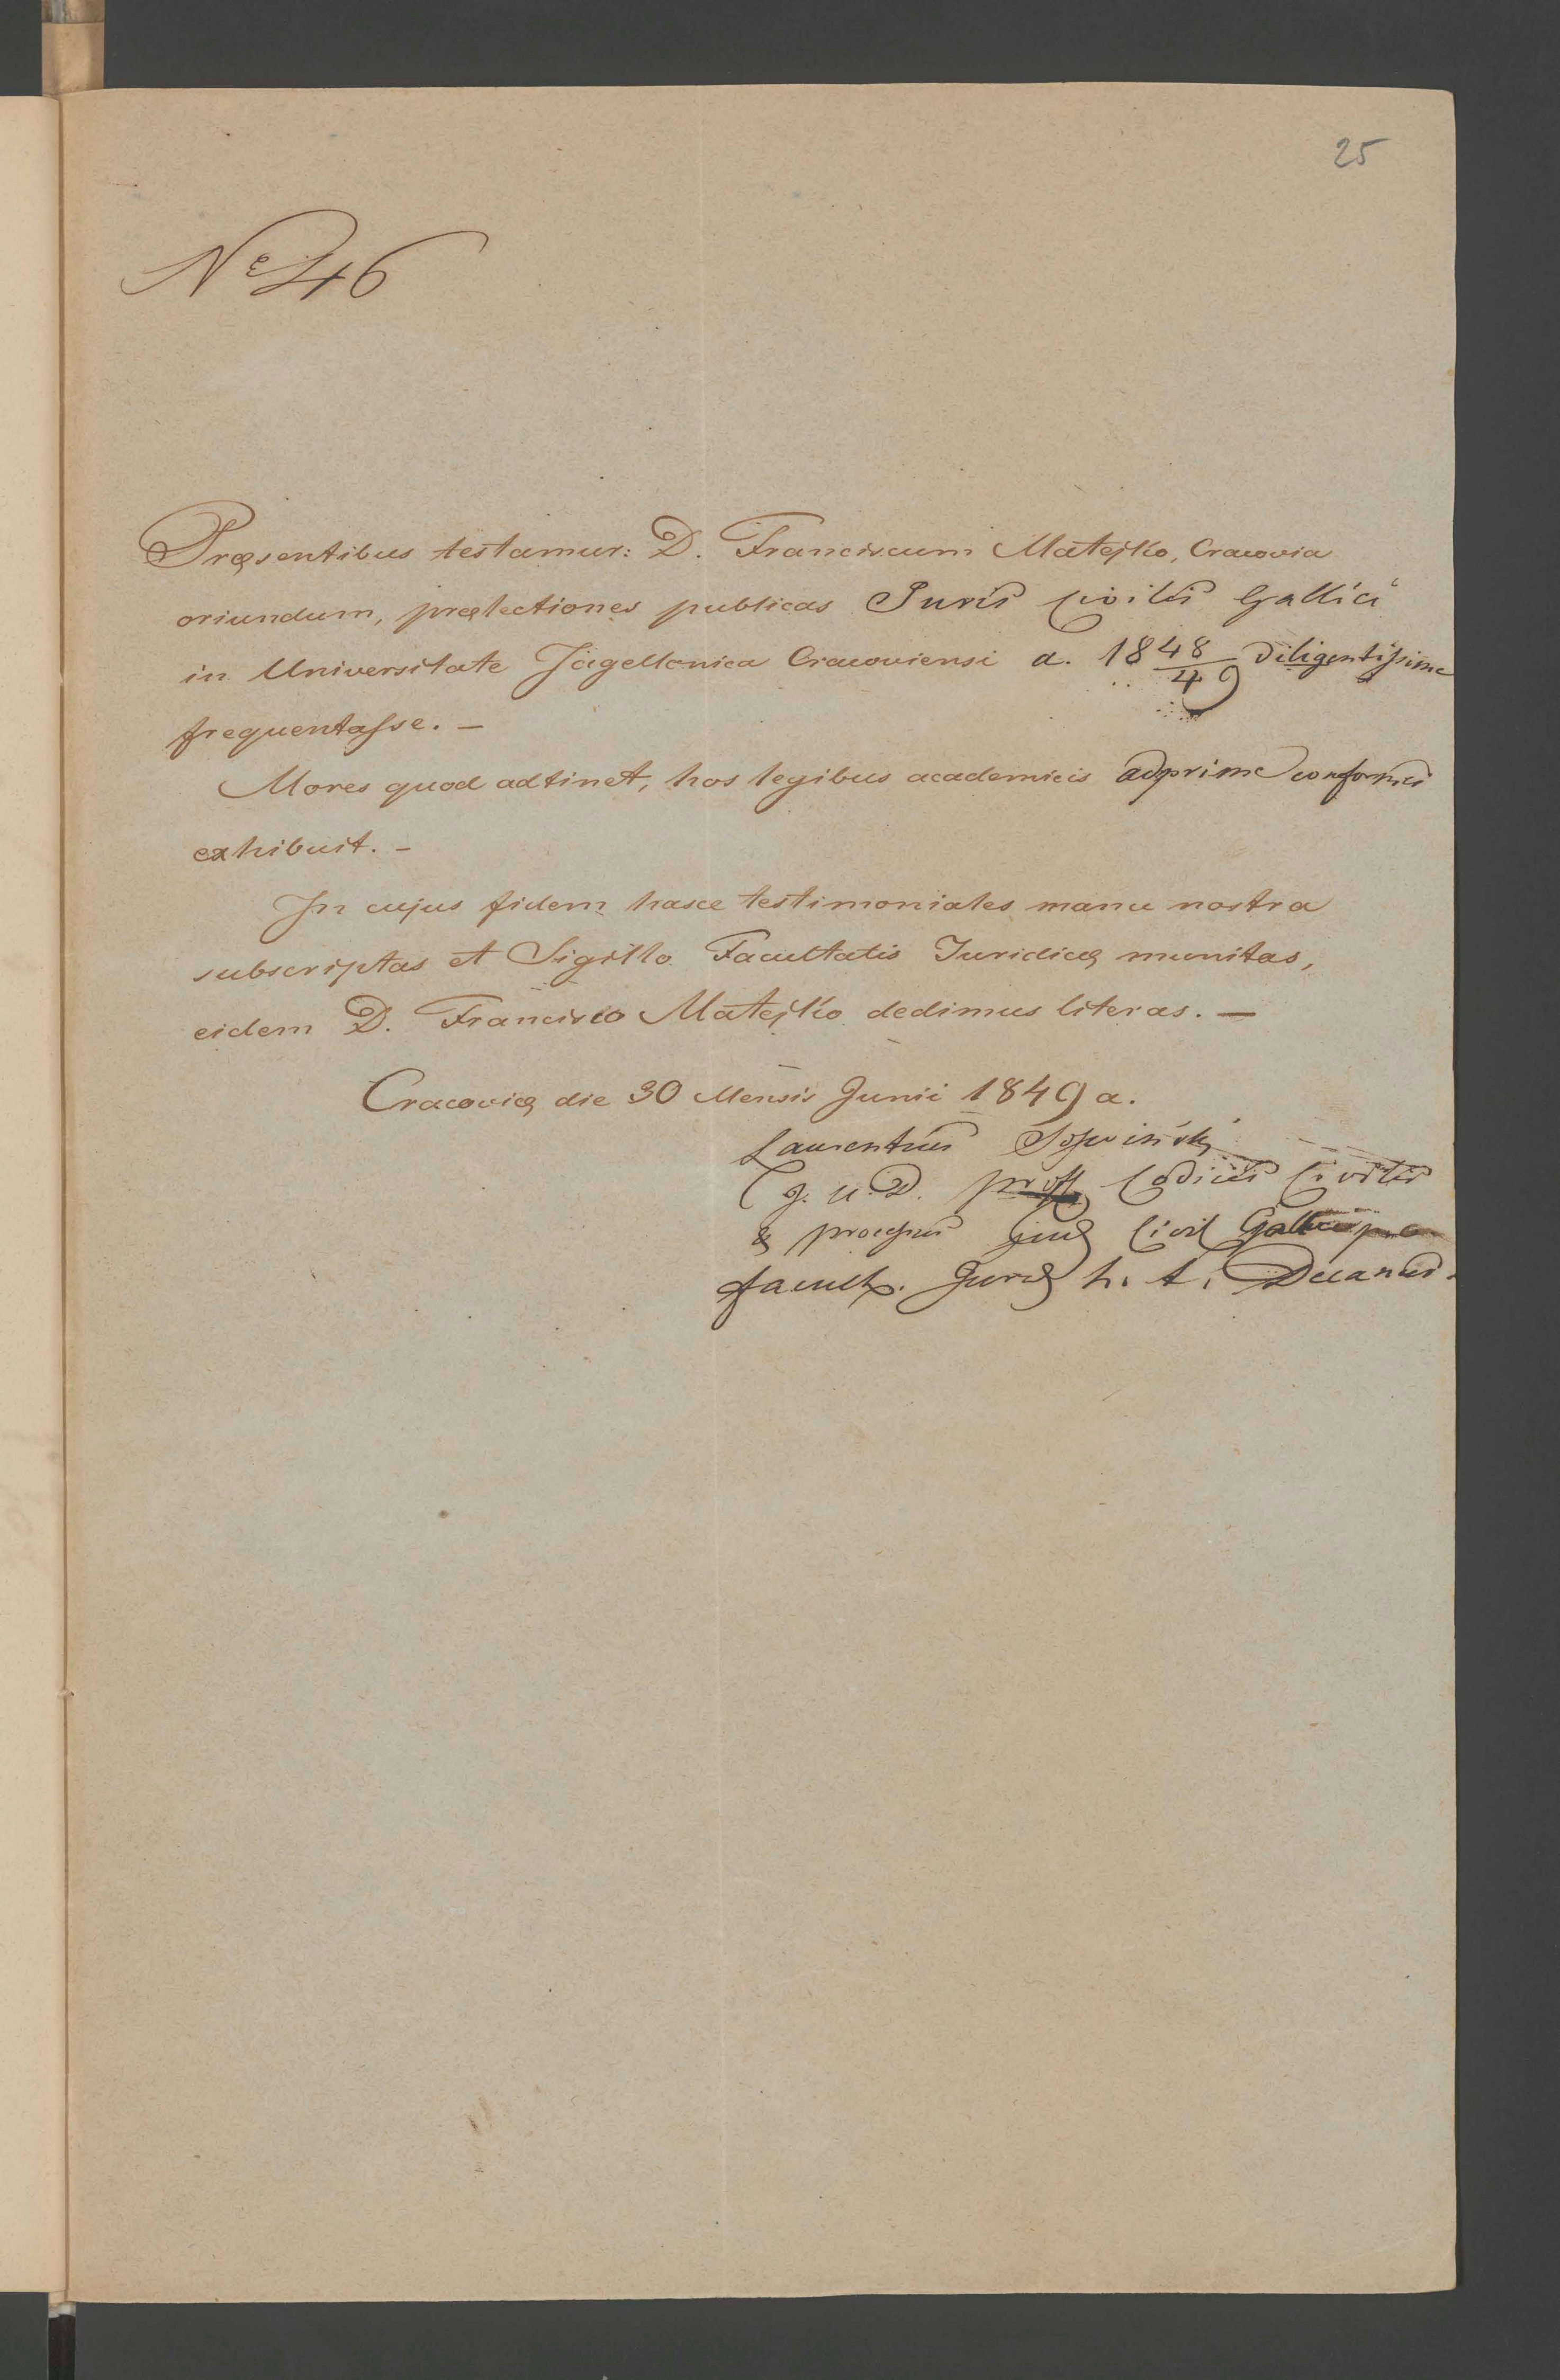 25
Nº 46
Præsentibus testamur: D. Franciscum Matejko, Cracovia
oriundum, prælectiones publicas Juris Civilis Gallici
in Universitate Jagellonica Cracoviensi a. 1848/49 diligentissime
frequentasse. —
Mores quod adtinet, hos legibus academicis adprime conformes
exhibuit. —
In cujus fidem hasce testimoniales manu nostra
subscriptas et Sigillo Facultatis Juridicæ munitas,
eidem D. Francisco Matejko dedimus literas. —
Cracoviæ die 30 Mensis Junii 1849 a.
Laurentius
J. U. D. prof. Codicis Civilis
& processus Civil
facult. h. t. Decanus.